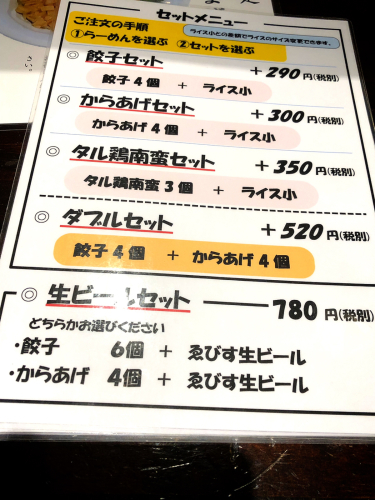 セットメニュー
ご注文の手順
①らーめんを選ぶ ②セットを選ぶ
ライス小との差額でライスのサイズ変更できます。
◎ 餃子セット +290円(税別)
餃子4個 + ライス小
◎ からあげセット +300円(税別)
からあげ4個 + ライス小
◎ タル鶏南蛮セット +350円(税別)
タル鶏南蛮3個 + ライス小
◎ ダブルセット +520円(税別)
餃子4個 + からあげ4個
◎ 生ビールセット 780円(税別)
どちらかお選びください
・餃子 6個 + ゑびす生ビール
・からあげ 4個 + ゑびす生ビール